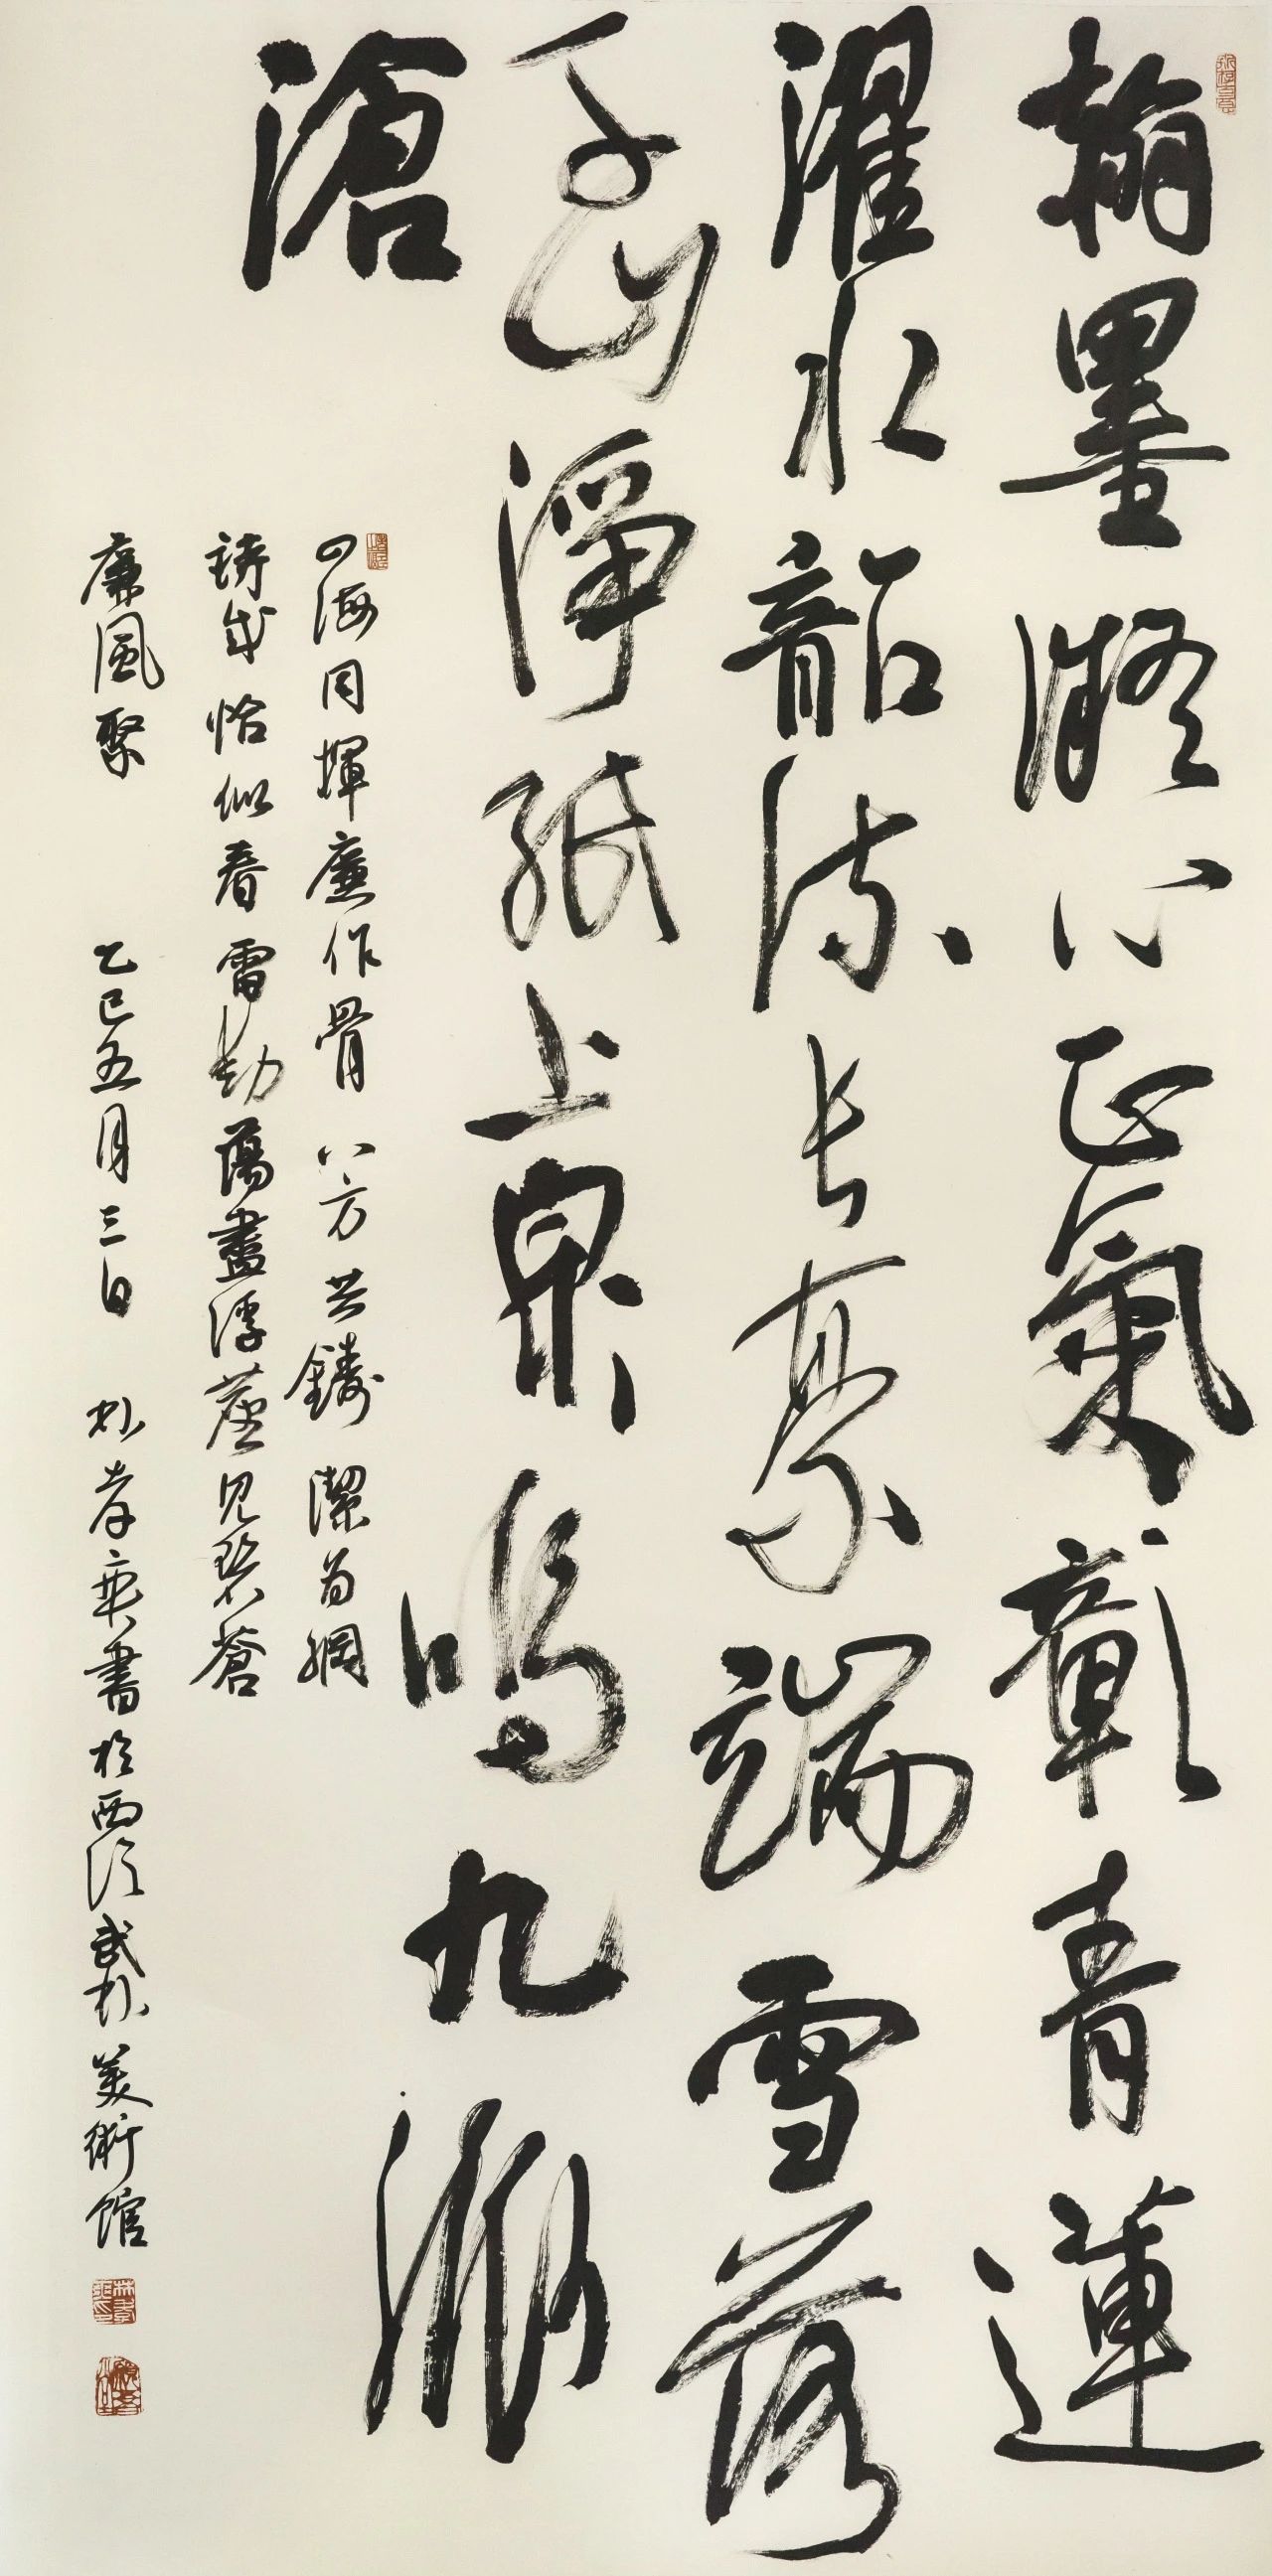 翰墨凝心正氣彰青蓮
濯水韻流長豪端雪落
千山淨紙上泉鳴九派
滄
四海同揮廉作骨八方共鑄潔為綱
詩成恰似春雷動蕩盡浮塵見碧蒼
廉風聚 乙巳五月三日 林孝書於西泠武林美術館